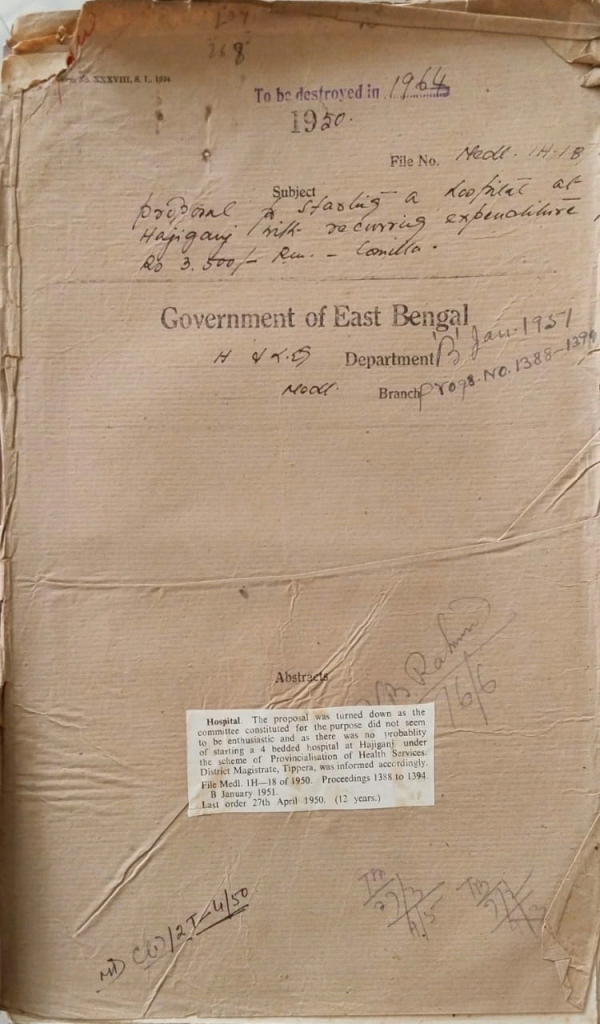 XXXVIII, S. I., 1934
268
To be destroyed in 1964
1950.
File No. Medl. 1H-18
Subject
proposal of starting a hospital at
Hajiganj with recurring expenditure
Rs 3.500/-
Comilla.
Government of East Bengal
H & L.G Department 'B' Jan. 1951
Medl. Branch Progs. No. 1388-1394
Abstracts
B Rahman
16/6
Hospital. The proposal was turned down as the
committee constituted for the purpose did not seem
to be enthusiastic and as there was no probablity
of starting a 4 bedded hospital at Hajiganj under
the scheme of Provincialisation of Health Services.
District Magistrate, Tippera, was informed accordingly.
File Medl. 1H—18 of 1950. Proceedings 1388 to 1394
B January 1951.
Last order 27th April 1950. (12 years.)